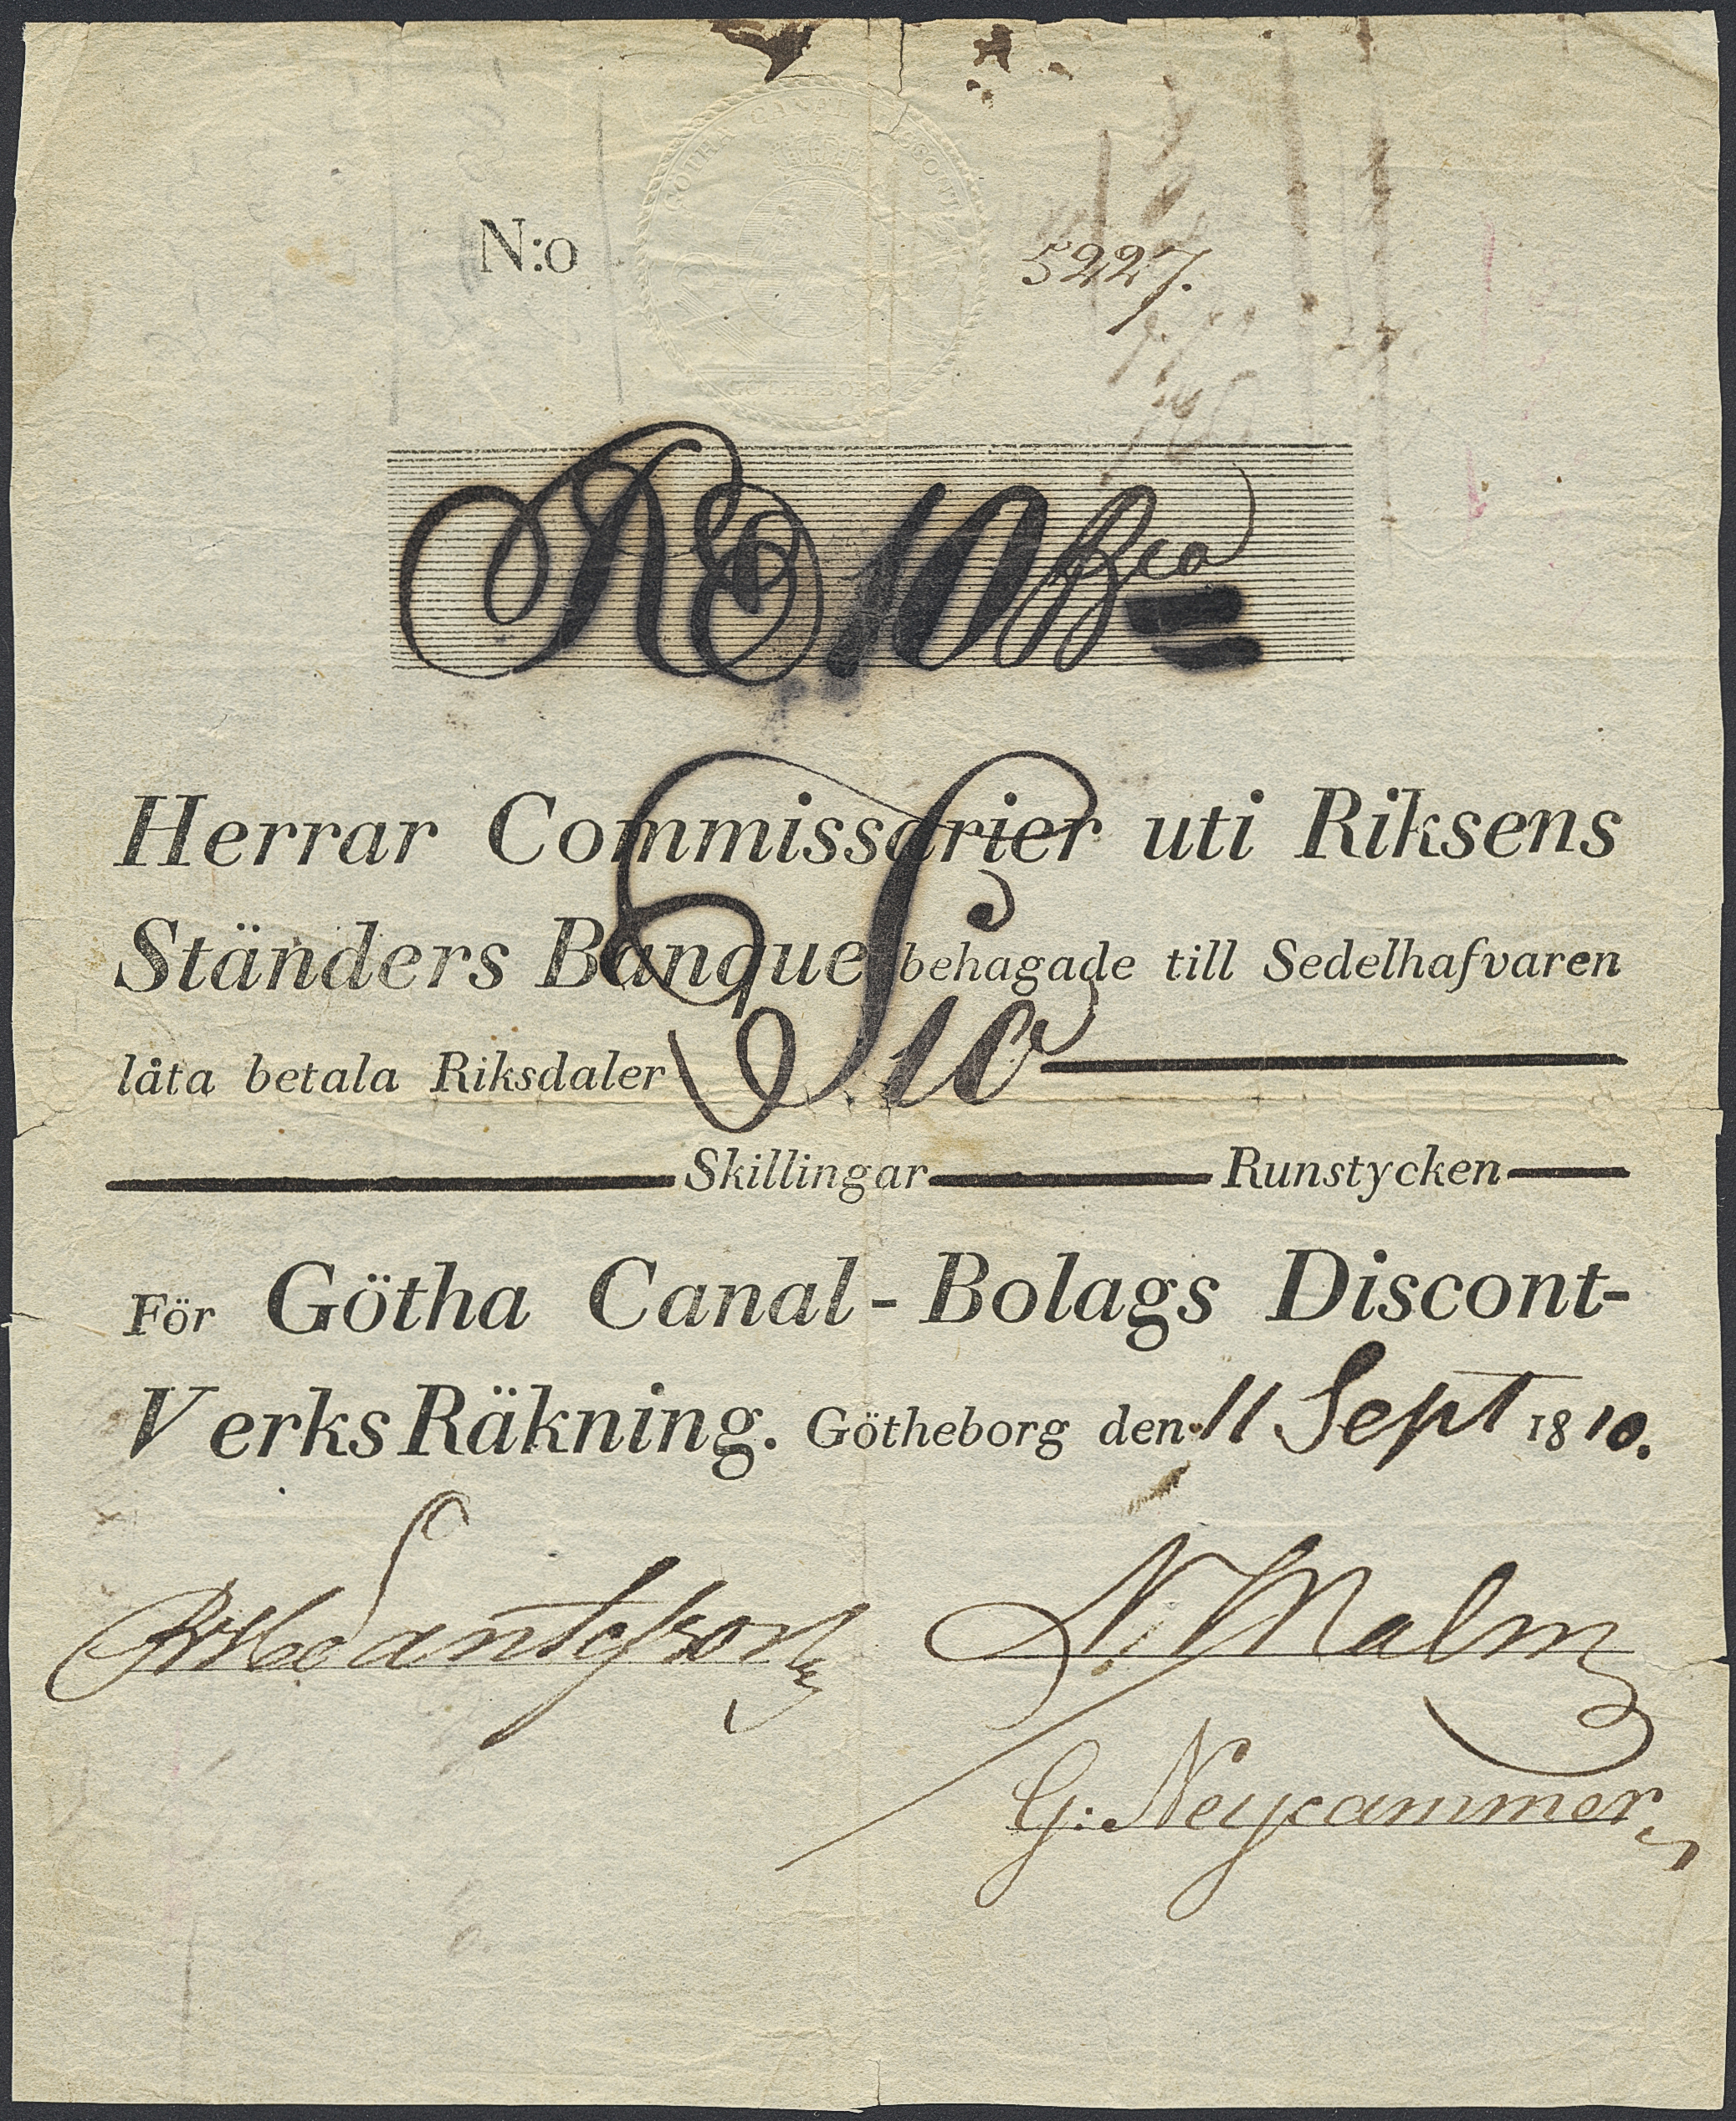 GÖTHA CANAL DISCONT
GÖTHEBORG
N:o 5227.
Rd 10 Bco
Herrar Commissarier uti Riksens
Ständers Banque behagade till Sedelhafvaren
låta betala Riksdaler Tio
Skillingar Runstycken
För Götha Canal-Bolags Discont-
Verks Räkning. Götheborg den 11 Sept 1810.
N. Malm